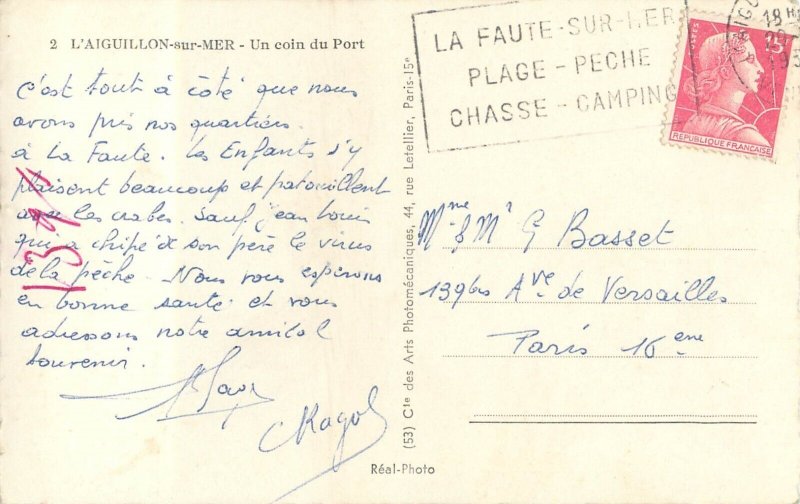 2 L'AIGUILLON-sur-MER - Un coin du Port
c'est tout à côté que nous
avons pris nos quartiers.
à La Faute. Les Enfants s'y
plaisent beaucoup et patouillent
avec les crabes. Sauf jean Louis
qui a chipé à son père le virus
de la pêche. Nous vous espérons
en bonne santé et vous
adressons notre amical
souvenir.
LA FAUTE-SUR-MER
PLAGE - PECHE
CHASSE - CAMPING
18 H
POSTES
15F
REPUBLIQUE FRANÇAISE
(53) Cie des Arts Photomécaniques, 44, rue Letellier, Paris-15e
Mme & Mr G Basset
139bis Ave de Versailles
Paris 16eme
Réal-Photo